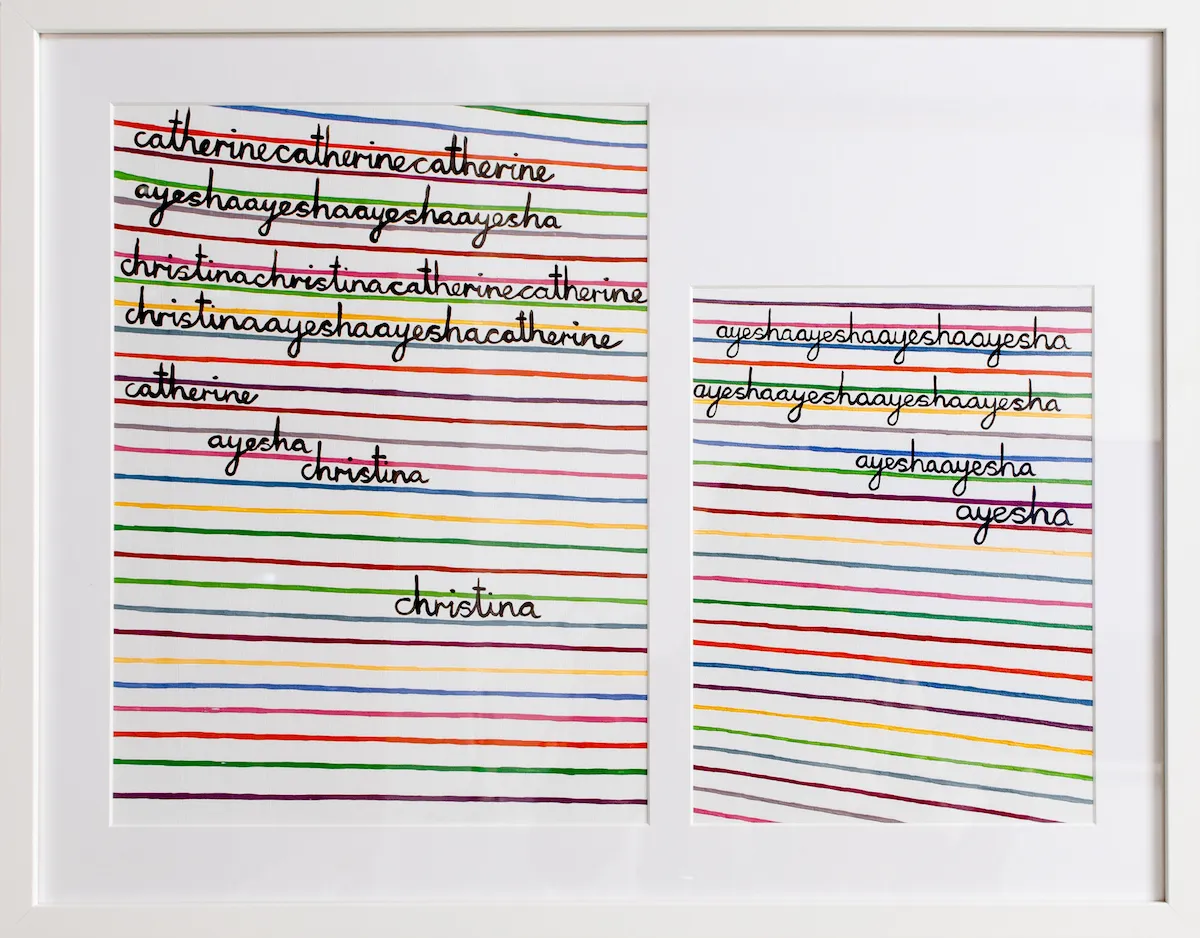 catherinecatherinecatherine
ayeshaayeshaayeshaayesha
christinachristinacatherinecatherine
christinaayeshaayeshacatherine
catherine
ayesha
christina
christina
ayeshaayeshaayeshaayesha
ayeshaayeshaayeshaayesha
ayeshaayesha
ayesha